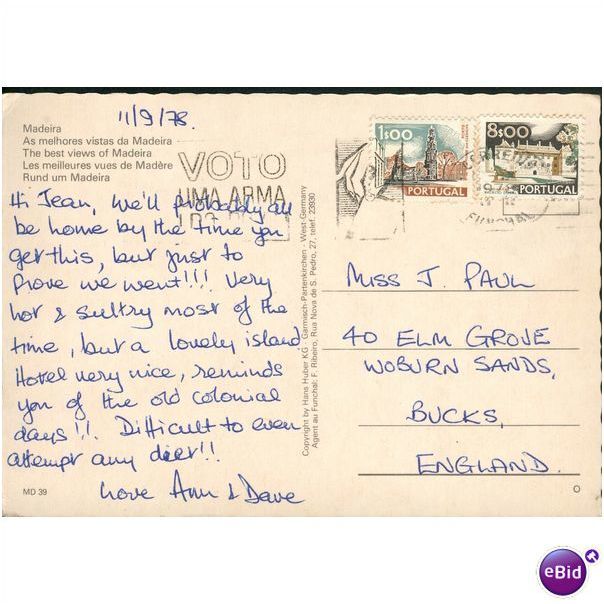 11/9/78.
Madeira
As melhores vistas da Madeira
The best views of Madeira
Les meilleures vues de Madère
Rund um Madeira
VOTO
UMA ARMA
DO
1$00
PORTUGAL
8$00
PORTUGAL
FUNCHAL
Hi Jean, We'll probably all
be home by the time you
get this, but just to
prove we went!!! Very
hot & sultry most of the
time, but a lovely island.
Hotel very nice, reminds
you of the old colonial
days!! Difficult to even
attempt any diet!!
Love Ann & Dave
MD 39
Copyright by Hans Huber KG · Garmisch-Partenkirchen - West-Germany
Agent au Funchal: F. Ribeiro, Rua Nova de S. Pedro, 27, telef. 23930
MISS J. PAUL
40 ELM GROVE
WOBURN SANDS,
BUCKS,
ENGLAND.
O
eBid